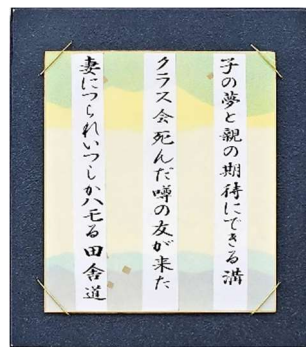 子の夢と親の期待にできる溝
クラス会死んだ噂の友が来た
妻につられいつしかハモる田舎道